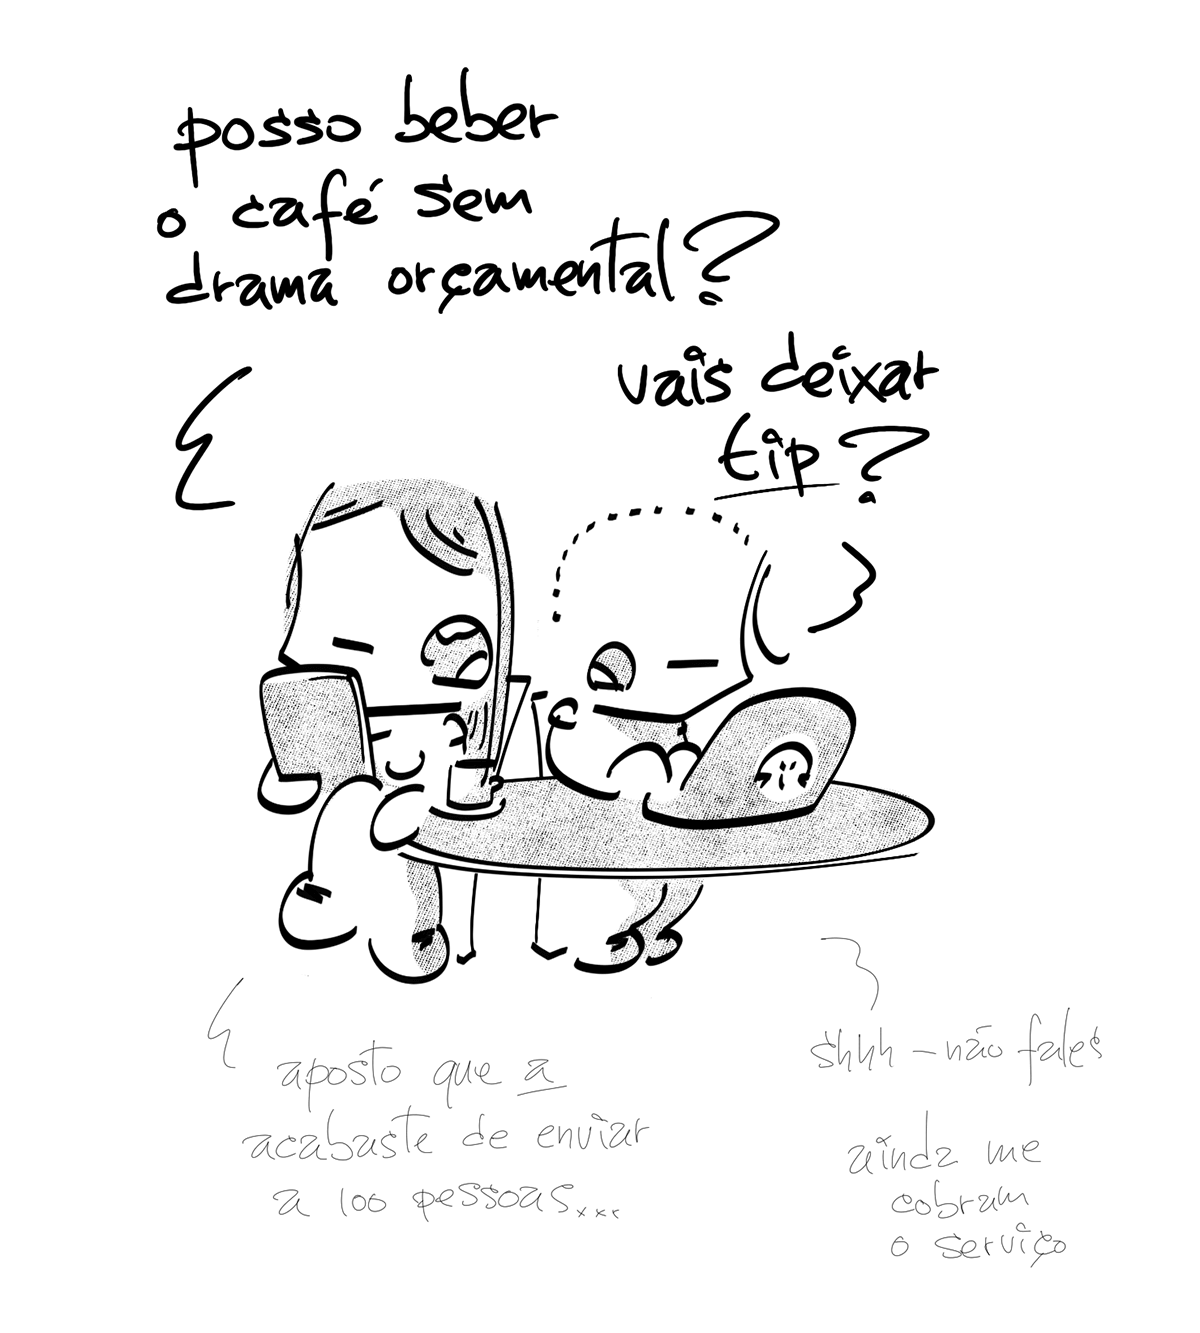 posso beber
o café sem
drama orçamental?
vais deixar
tip?
aposto que a
acabaste de enviar
a 100 pessoas...
shhh - não fales
ainda me
cobram
o serviço